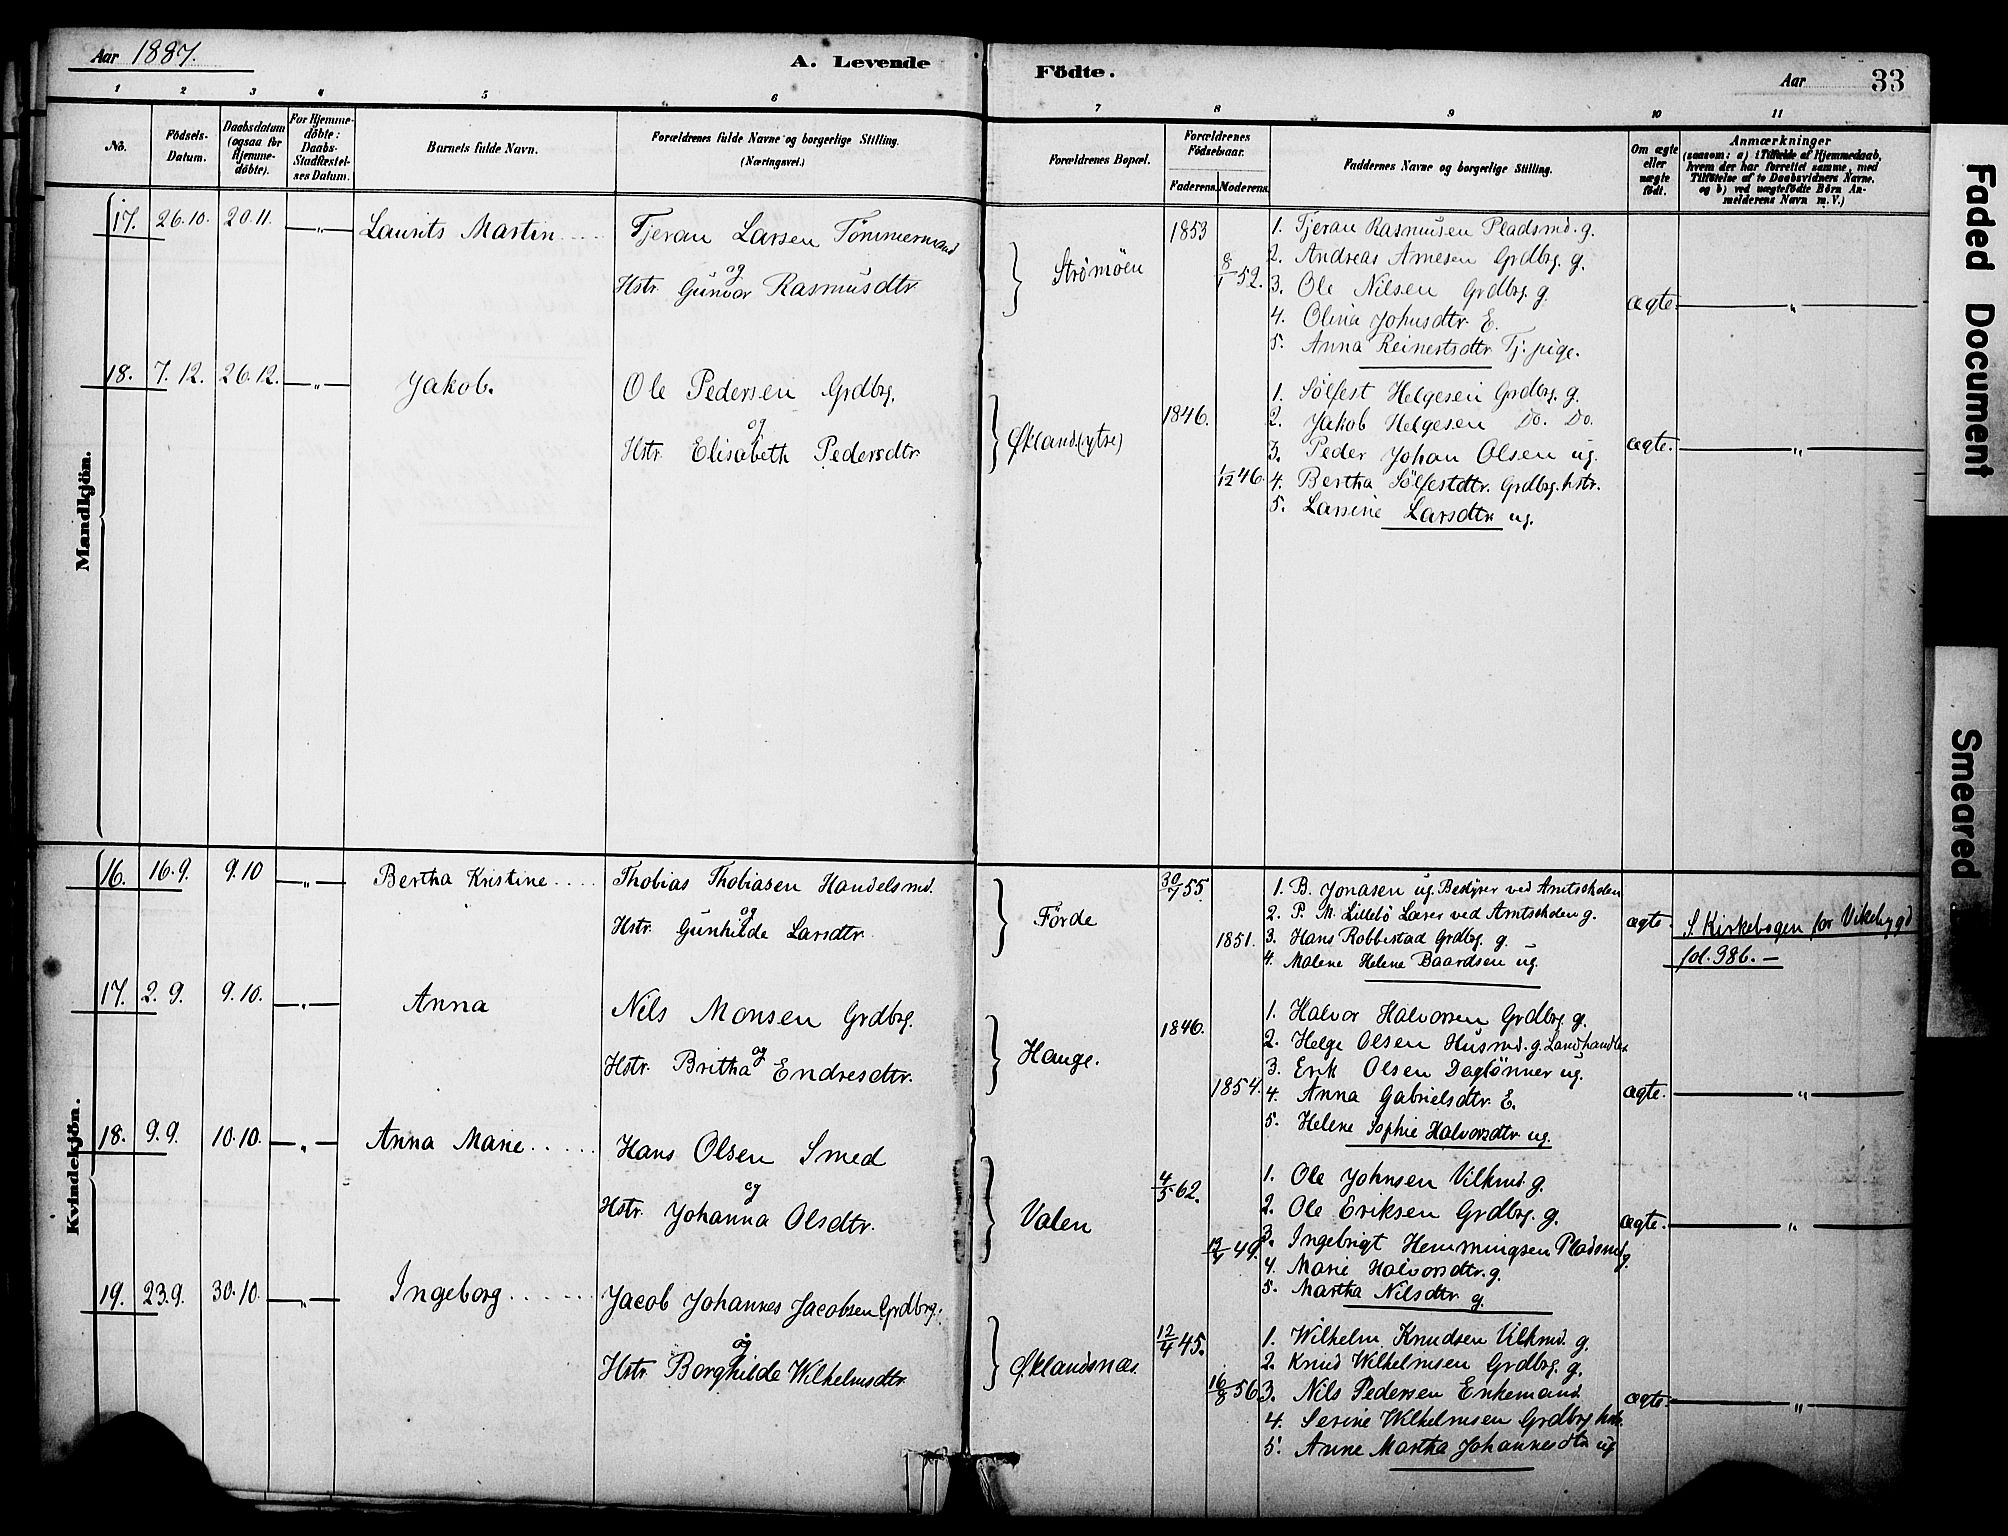 Aar 1887.
A. Levende
Födte.
Aar
33
1 2 3 4 5 6 7 8 9 10 11
No.
Födsels-Datum.
Daabsdatum (ogsaa for Hjemme-döbte).
For Hjemme-döbte: Daabs-Stadfæstel-ses Datum.
Barnets fulde Navn.
Forældrenes fulde Navne og borgerlige Stilling.
(Næringsvei.)
Forældrenes Bopæl.
Forældrenes Födselsaar.
Faderens. Moderens.
Faddernes Navne og borgerlige Stilling.
Om ægte eller uægte födt.
Anmærkninger
(saasom: a) i Tilfælde af Hjemmedaab,
hvem der har forrettet samme, med
Tilföielse af to Daabsvidners Navne,
og b) ved uægtefödte Börn An-
melderens Navn m. V.)
Mandkjön.
17. 26.10. 20.11. — " — Laurits Martin .... Tjeran Larsen Tømmermand
og
Hstr. Gunvor Rasmusdtr.
Strømøen
1853
8/1 52.
1. Tjeran Rasmusen Pladsmd. g.
2. Andreas Arnesen Grdbrg. g.
3. Ole Nilsen Grdbrg. g.
4. Olina Johnsdtr. E.
5. Anna Reinertsdtr. Tj. pige.
ægte. — " —
18. 7.12. 26.12. — " — Jakob. Ole Pedersen Grdbrg.
og
Hstr. Elisabeth Pedersdtr.
Økland (ytre)
1846.
1/12 46.
1. Sølfest Helgesen Grdbrg. g.
2. Jakob Helgesen Do. Do.
3. Peder Johan Olsen ug.
4. Bertha Sølfestdtr. Grdbrg. hstr.
5. Larsine Larsdtr. ug.
ægte. — " —
Kvindekjön.
16. 16.9. 9.10 — " — Bertha Kristine .... Thobias Thobiasen Handelsmd.
og
Hstr. Gunhilde Larsdtr.
Förde
30/7 55.
1851.
1. B. Jonasen ug. Bestyrer ved Amtsskolen
2. P. M. Lillebö Lærer ved Amtsskolen g.
3. Hans Robberstad Grdbrg. g.
4. Malene Helene Baardsen ug.
ægte. S. Kirkebogen for Vikebygd
fol. 986. —
17. 2.9. 9.10. — " — Anna Nils Monsen Grdbrg.
og
Hstr. Britha Endresdtr.
Hauge.
1846.
1854.
1. Halvor Halvorsen Grdbrg. g.
2. Helge Olsen Husmd. g. Landhandler
3. Erik Olsen Daglönner ug.
4. Anna Gabrielsdtr. E.
5. Helene Sophie Halvorsdtr. ug.
ægte. — " —
18. 9.9. 10.10. — " — Anna Marie ..... Hans Olsen Smed
og
Hstr. Johanna Olsdtr.
Valen
4/5 62.
49.
1. Ole Johnsen Vilkmd. g.
2. Ole Eriksen Grdbrg. g.
3. Ingebrigt Hemmingsen Pladsmd. g.
4. Marie Halvorsdtr. g.
5. Martha Nilsdtr. g.
ægte. — " —
19. 23.9. 30.10. — " — Ingeborg ...... Jacob Johannes Jacobsen Grdbrg.
og
Hstr. Borghilde Wilhelmsdtr.
Øklandsnæs.
12/4 45.
16/8 56.
1. Wilhelm Knudsen Vilkmd. g.
2. Knud Wilhelmsen Grdbrg. g.
3. Nils Pedersen Enkemand
4. Serine Wilhelmsen Grdbrg. hstr.
5. Anne Martha Johannesdtr. ug.
ægte. — " —
Faded Document
Smeared